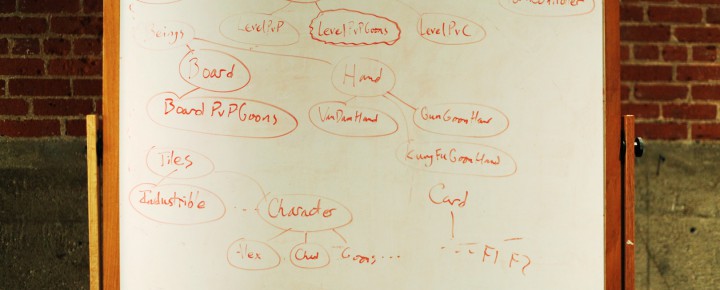 LevelPvP LevelPvPGoons LevelPvC
Beings
Board Hand
BoardPvPGoons VanDamHand GunGoonHand
KungFuGoonHand
Tiles
Card
... Character
Alex Chad Goons ...
... F1 F2